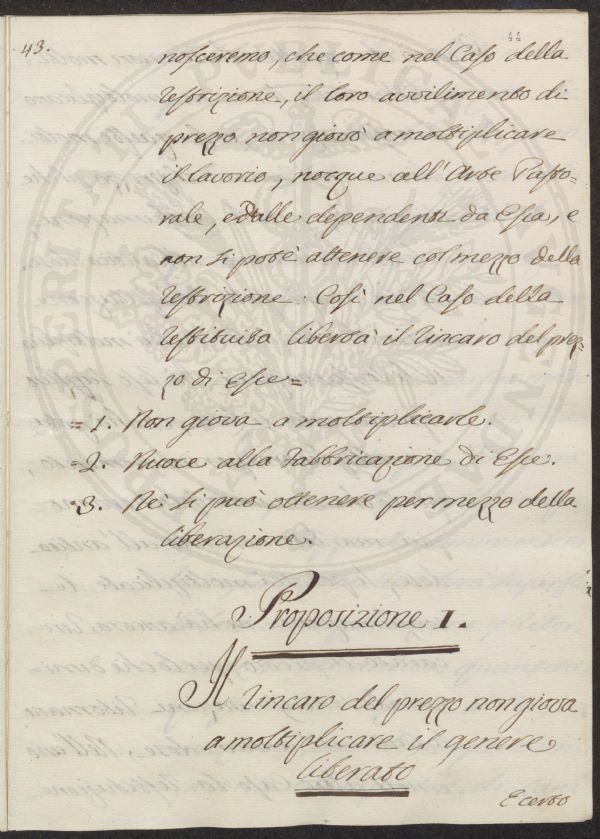 43.
44
nosceremo, che come nel Caso della
restrizione, il loro avvilimento di
prezzo non giovò a moltiplicare
il lavorio, nocque all'Arte Pasto-
rale, e dalle dependenti da Essa, e
non si potè attenere col mezzo della
restrizione: Così nel Caso della
restituita libertà il rincaro del prez-
zo di Esse =
= 1. Non giova a moltiplicarle.
= 2. Nuoce alla Fabbricazione di Esse.
= 3. Nè si può ottenere per mezzo della
liberazione.
Proposizione I.
Il rincaro del prezzo non giova
a moltiplicare il genere
liberato
E certo